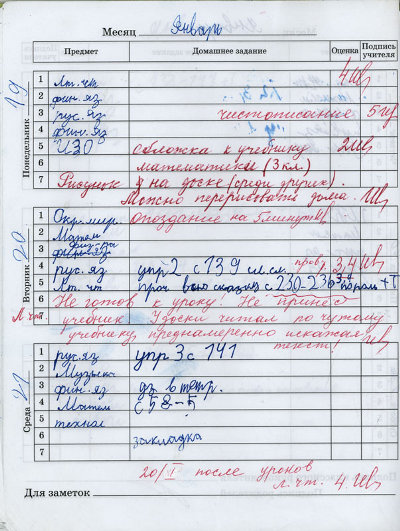 Месяц Январь
Предмет Домашнее задание Оценка Подпись учителя
Понедельник 19
1 Лит. чт. 4
2 фин. яз
3 рус. яз. чистописание 5
4 фин. яз
5 ИЗО обложка к учебнику 2
6 математики (3 кл.)
7 Рисунок на доске (среди других).
Можно перерисовать дома.
Вторник 20
1 Окр. мир. опоздание на 5 минут
2 Матем
3 физ-ра
4 рус. яз упр 2 с 139 сл. сл. 3,4
5 Лит. чт проч с. 230-236 + Т
6 Не готов к уроку! Не принёс
Л. чт. учебник. У доски читал по чужому
7 учебнику, преднамеренно искажая
текст!
Среда 21
1 рус. яз упр 3 с 141
2 Музыка
3 фин. яз дз в тетр.
4 Матем с 58-5
5 технол
6 закладка
7
20/I после уроков
Л. чт. 4
Для заметок